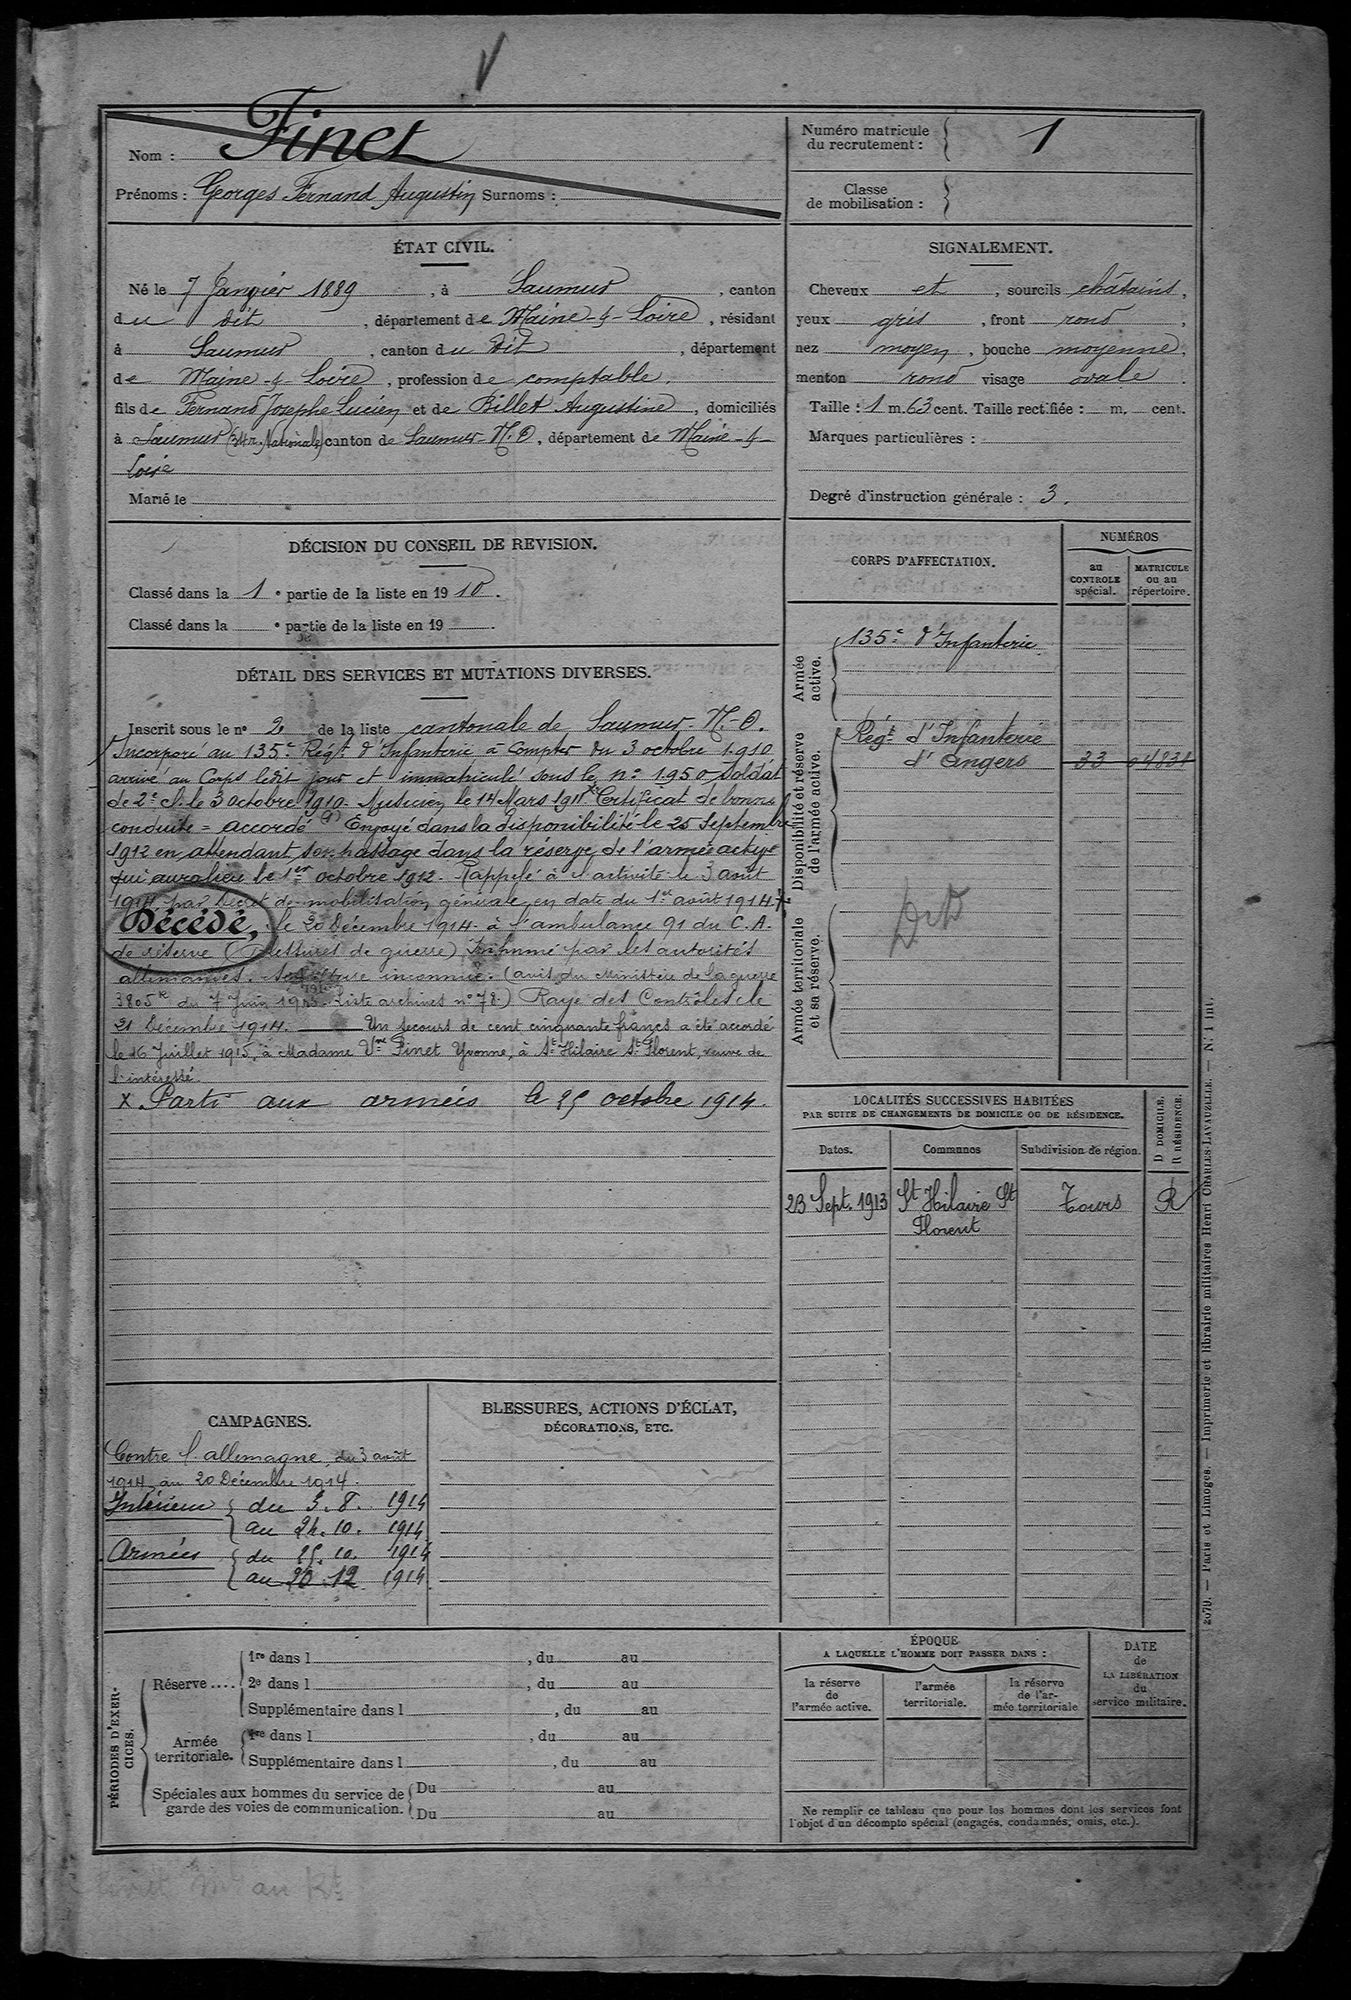 Nom : Finet
Prénoms : Georges Fernand Augustin Surnoms :
Numéro matricule du recrutement : 1
Classe de mobilisation :
ÉTAT CIVIL.
Né le 7 Janvier 1889, à Saumur, canton
du dit, département de Maine-&-Loire, résidant
à Saumur, canton du dit, département
de Maine-&-Loire, profession de comptable.
fils de Fernand Josephe Lucien et de Billet Augustine, domiciliés
à Saumur (34 r. Nationale) canton de Saumur-N.O, département de Maine-&-
Loire
Marié le
SIGNALEMENT.
Cheveux et, sourcils châtains,
yeux gris, front rond,
nez moyen, bouche moyenne,
menton rond visage ovale.
Taille : 1 m. 63 cent. Taille rectifiée : m. cent.
Marques particulières :
Degré d'instruction générale : 3.
DÉCISION DU CONSEIL DE REVISION.
Classé dans la 1e partie de la liste en 1910.
Classé dans la e partie de la liste en 19 .
DÉTAIL DES SERVICES ET MUTATIONS DIVERSES.
Inscrit sous le no 2 de la liste cantonale de Saumur-N.-O.
Incorporé au 135e Régt d'Infanterie à compter du 3 octobre 1910
arrivé au Corps ledit jour et immatriculé sous le no 1950 Soldat
de 2e cl. le 3 octobre 1910. Musicien le 14 Mars 1911 Certificat de bonne
conduite = accordé Envoyé dans la disponibilité le 25 Septembre
1912 en attendant son passage dans la réserve de l'armée active
qui aura lieu le 1er octobre 1912. Rappelé à l'activité le 3 août
1914 par Décret de mobilisation générale en date du 1er août 1914 x
Décédé, le 20 Décembre 1914 à l'ambulance 91 du C.A.
de réserve (Blessures de guerre) Inhumé par les autorités
allemandes. Sépulture inconnue. (avis du Ministère de la guerre
3805k du 7 Juin 1915 Liste archives no 78.) Rayé des Contrôles le
21 Décembre 1914. Un secours de cent cinquante francs a été accordé
le 16 Juillet 1915, à Madame Vve Finet Yvonne, à St Hilaire St Florent, veuve de
l'intéressé.
x Parti aux armées le 25 octobre 1914.
CORPS D'AFFECTATION.
NUMÉROS
au CONTROLE spécial.
MATRICULE ou au répertoire.
Armée active.
135e d'Infanterie
Disponibilité et réserve de l'armée active.
Régt d'Infanterie
d'Angers 33 04831
Armée territoriale et sa réserve.
Dcd
LOCALITÉS SUCCESSIVES HABITÉES
PAR SUITE DE CHANGEMENTS DE DOMICILE OU DE RÉSIDENCE.
D DOMICILE.
R RÉSIDENCE.
Dates. Communes Subdivision de région.
23 Sept. 1913 St Hilaire St Tours R
Florent
CAMPAGNES.
Contre l'allemagne, du 3 août
1914 au 20 Décembre 1914.
Intérieur du 3. 8. 1914
au 24. 10. 1914
Armées du 25. 10. 1914
au 20. 12. 1914
BLESSURES, ACTIONS D'ÉCLAT,
DÉCORATIONS, ETC.
PÉRIODES D'EXERCICES.
Réserve ....
1re dans l , du au
2e dans l , du au
Supplémentaire dans l , du au
Armée territoriale.
1re dans l , du au
Supplémentaire dans l , du au
Spéciales aux hommes du service de
garde des voies de communication.
Du au
Du au
ÉPOQUE
A LAQUELLE L'HOMME DOIT PASSER DANS :
la réserve de l'armée active.
l'armée territoriale.
la réserve de l'armée territoriale
DATE
de
LA LIBÉRATION
du
service militaire.
Ne remplir ce tableau que pour les hommes dont les services font
l'objet d'un décompte spécial (engagés, condamnés, omis, etc.).
2079. — Paris et Limoges. — Imprimerie et librairie militaires Henri CHARLES-LAVAUZELLE. — N° 1 int.